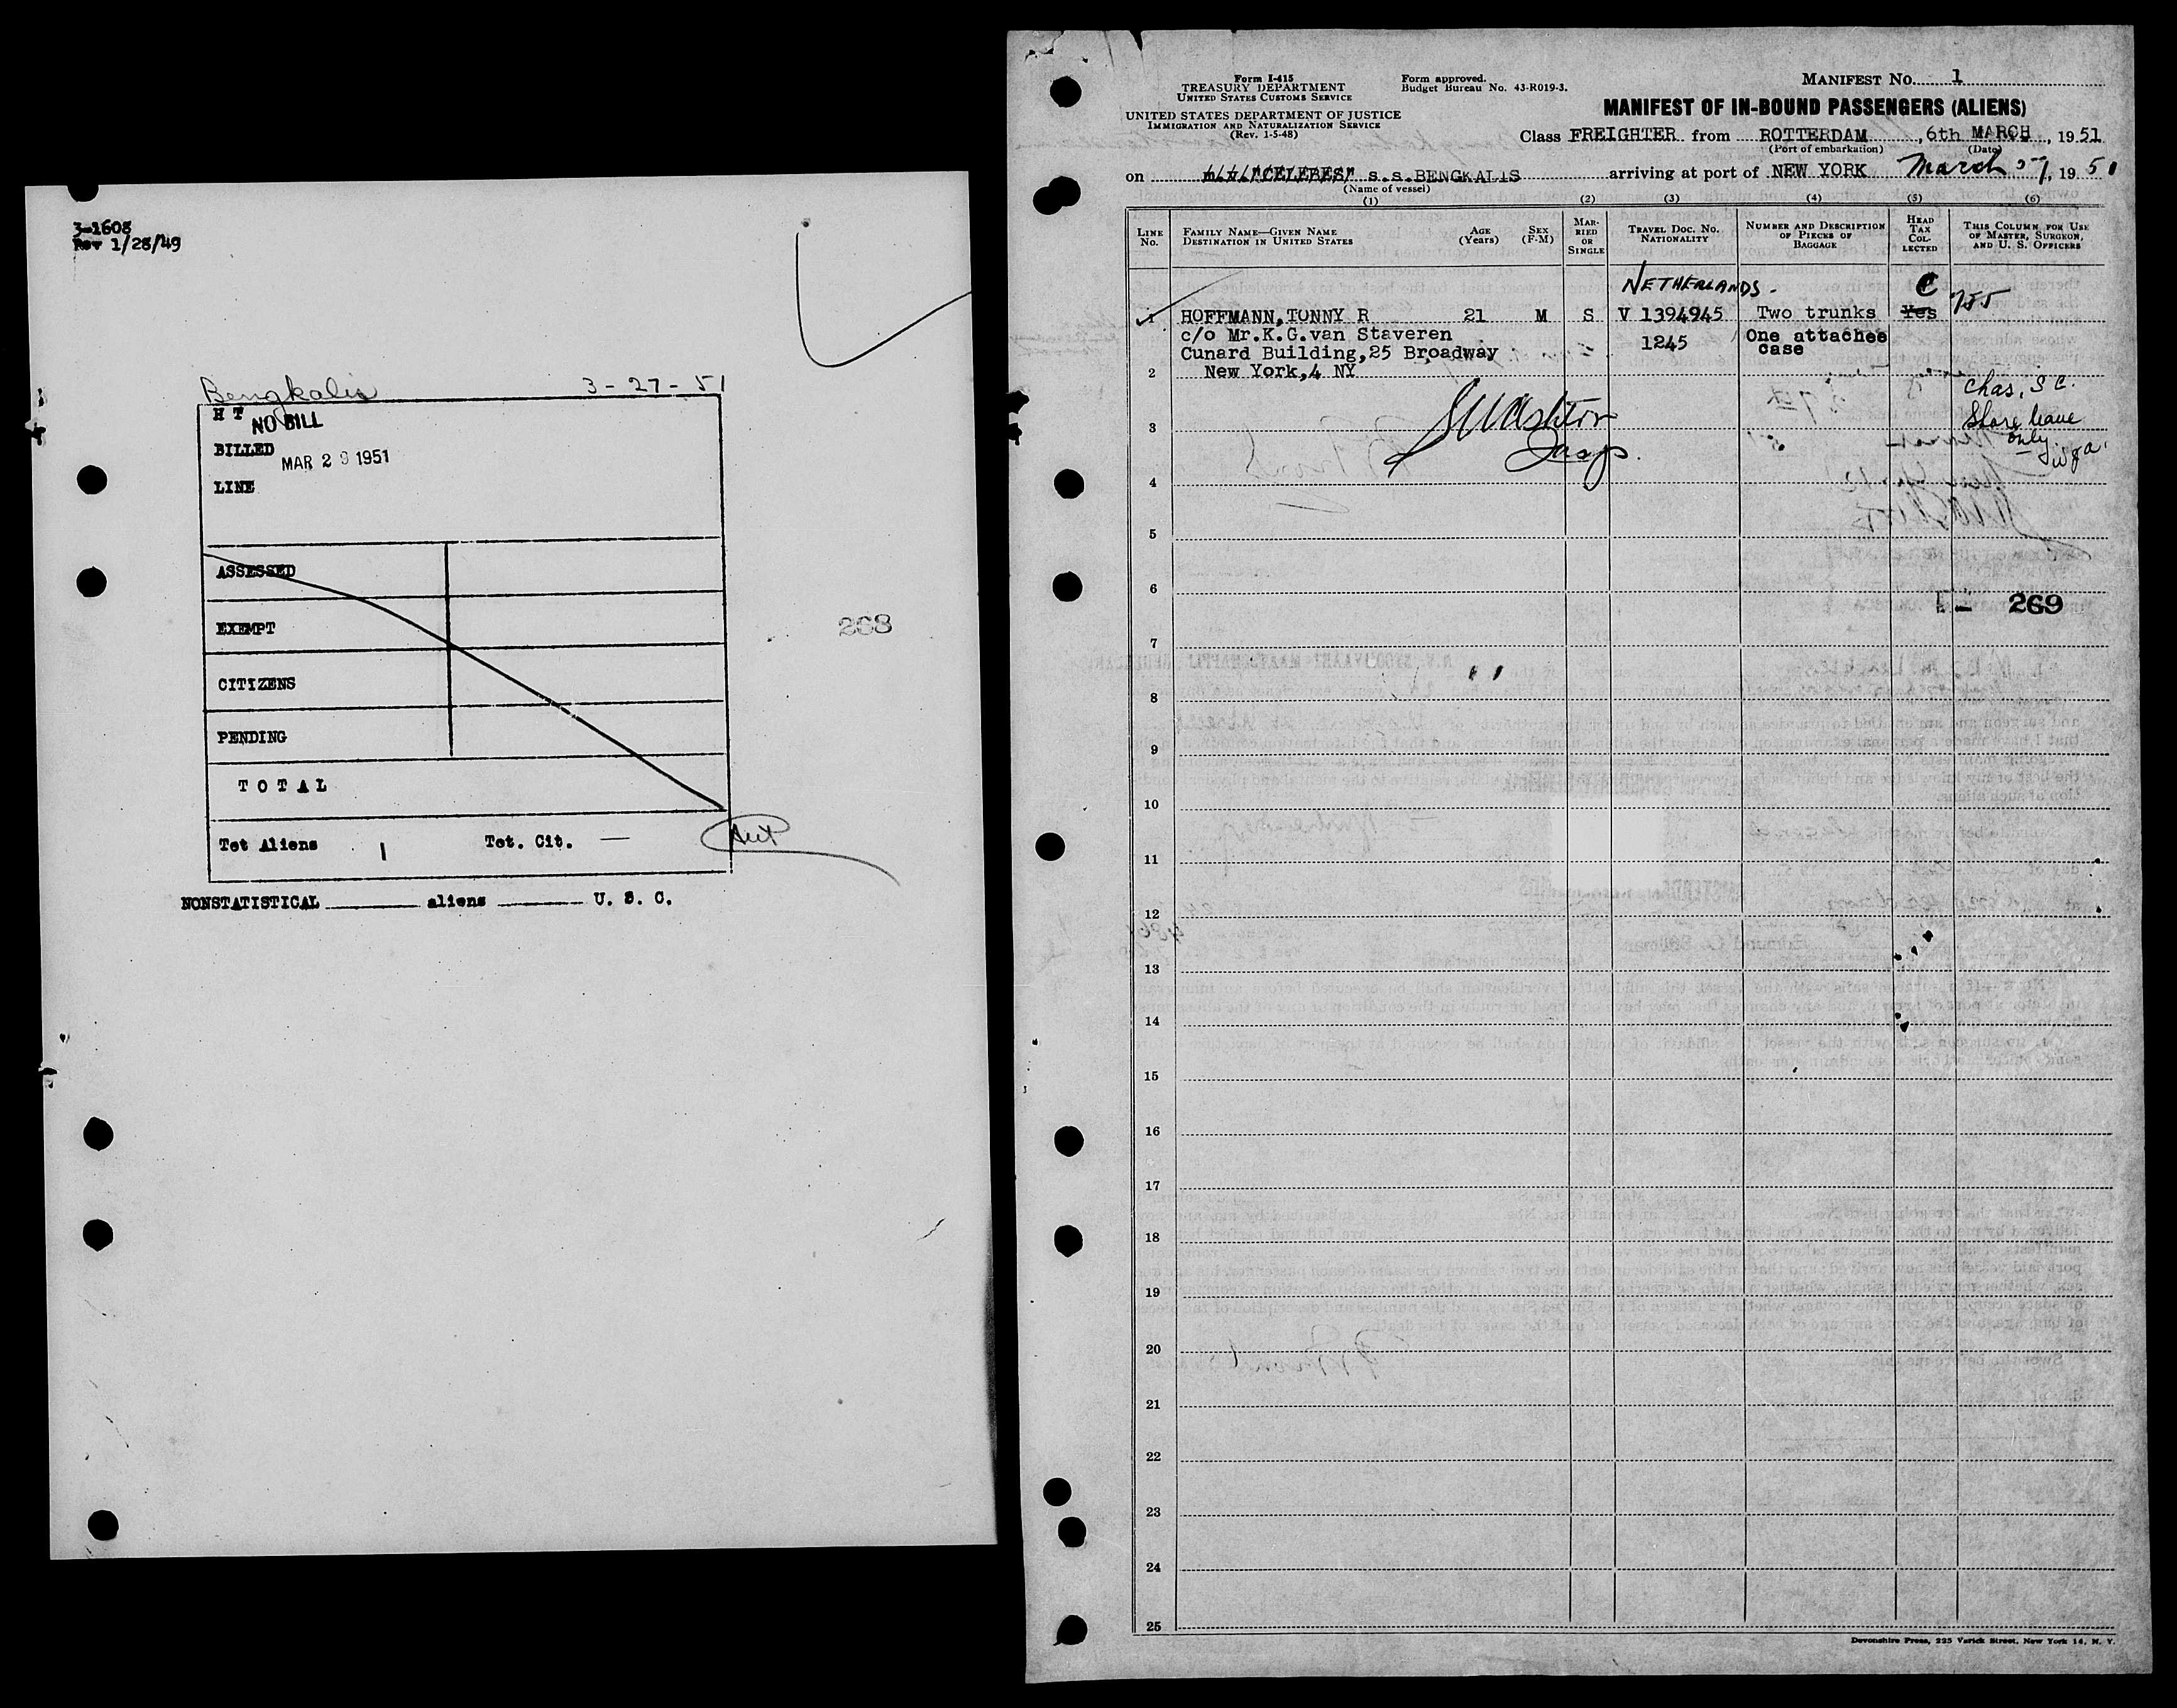 3-1608
Rev 1/28/49
Bengkalis 3-27-51
H T NO BILL
BILLED MAR 29 1951
LINE
ASSESSED
EXEMPT
CITIZENS
PENDING
T O T A L
Tot Aliens 1 Tot. Cit. —
NONSTATISTICAL aliens U. S. C.
268
Form I-415
TREASURY DEPARTMENT
UNITED STATES CUSTOMS SERVICE
UNITED STATES DEPARTMENT OF JUSTICE
IMMIGRATION AND NATURALIZATION SERVICE
(Rev. 1-5-48)
Form approved.
Budget Bureau No. 43-R019-3.
MANIFEST No. 1
MANIFEST OF IN-BOUND PASSENGERS (ALIENS)
Class FREIGHTER from ROTTERDAM, 6th MARCH, 1951
(Port of embarkation) (Date)
on m.v."CELEBES" s.s.BENGKALIS arriving at port of NEW YORK March 27, 1951
(Name of vessel)
(1) (2) (3) (4) (5) (6)
LINE No.
FAMILY NAME—GIVEN NAME
DESTINATION IN UNITED STATES
AGE (Years)
SEX (F-M)
MARRIED OR SINGLE
TRAVEL DOC. NO.
NATIONALITY
NUMBER AND DESCRIPTION OF PIECES OF BAGGAGE
HEAD TAX COLLECTED
THIS COLUMN FOR USE OF MASTER, SURGEON, AND U. S. OFFICERS
NETHERLANDS. C
1 HOFFMANN,TONNY R 21 M S V 1394945 Two trunks Yes
c/o Mr.K.G.van Staveren 1245 One attachee case
Cunard Building,25 Broadway
2 New York,4 NY
Chas, S C.
Shore leave
only.
3
4
5
6
I- 269
7
8
9
10
11
12
13
14
15
16
17
18
19
20
21
22
23
24
25
Devonshire Press, 225 Varick Street, New York 14, N. Y.